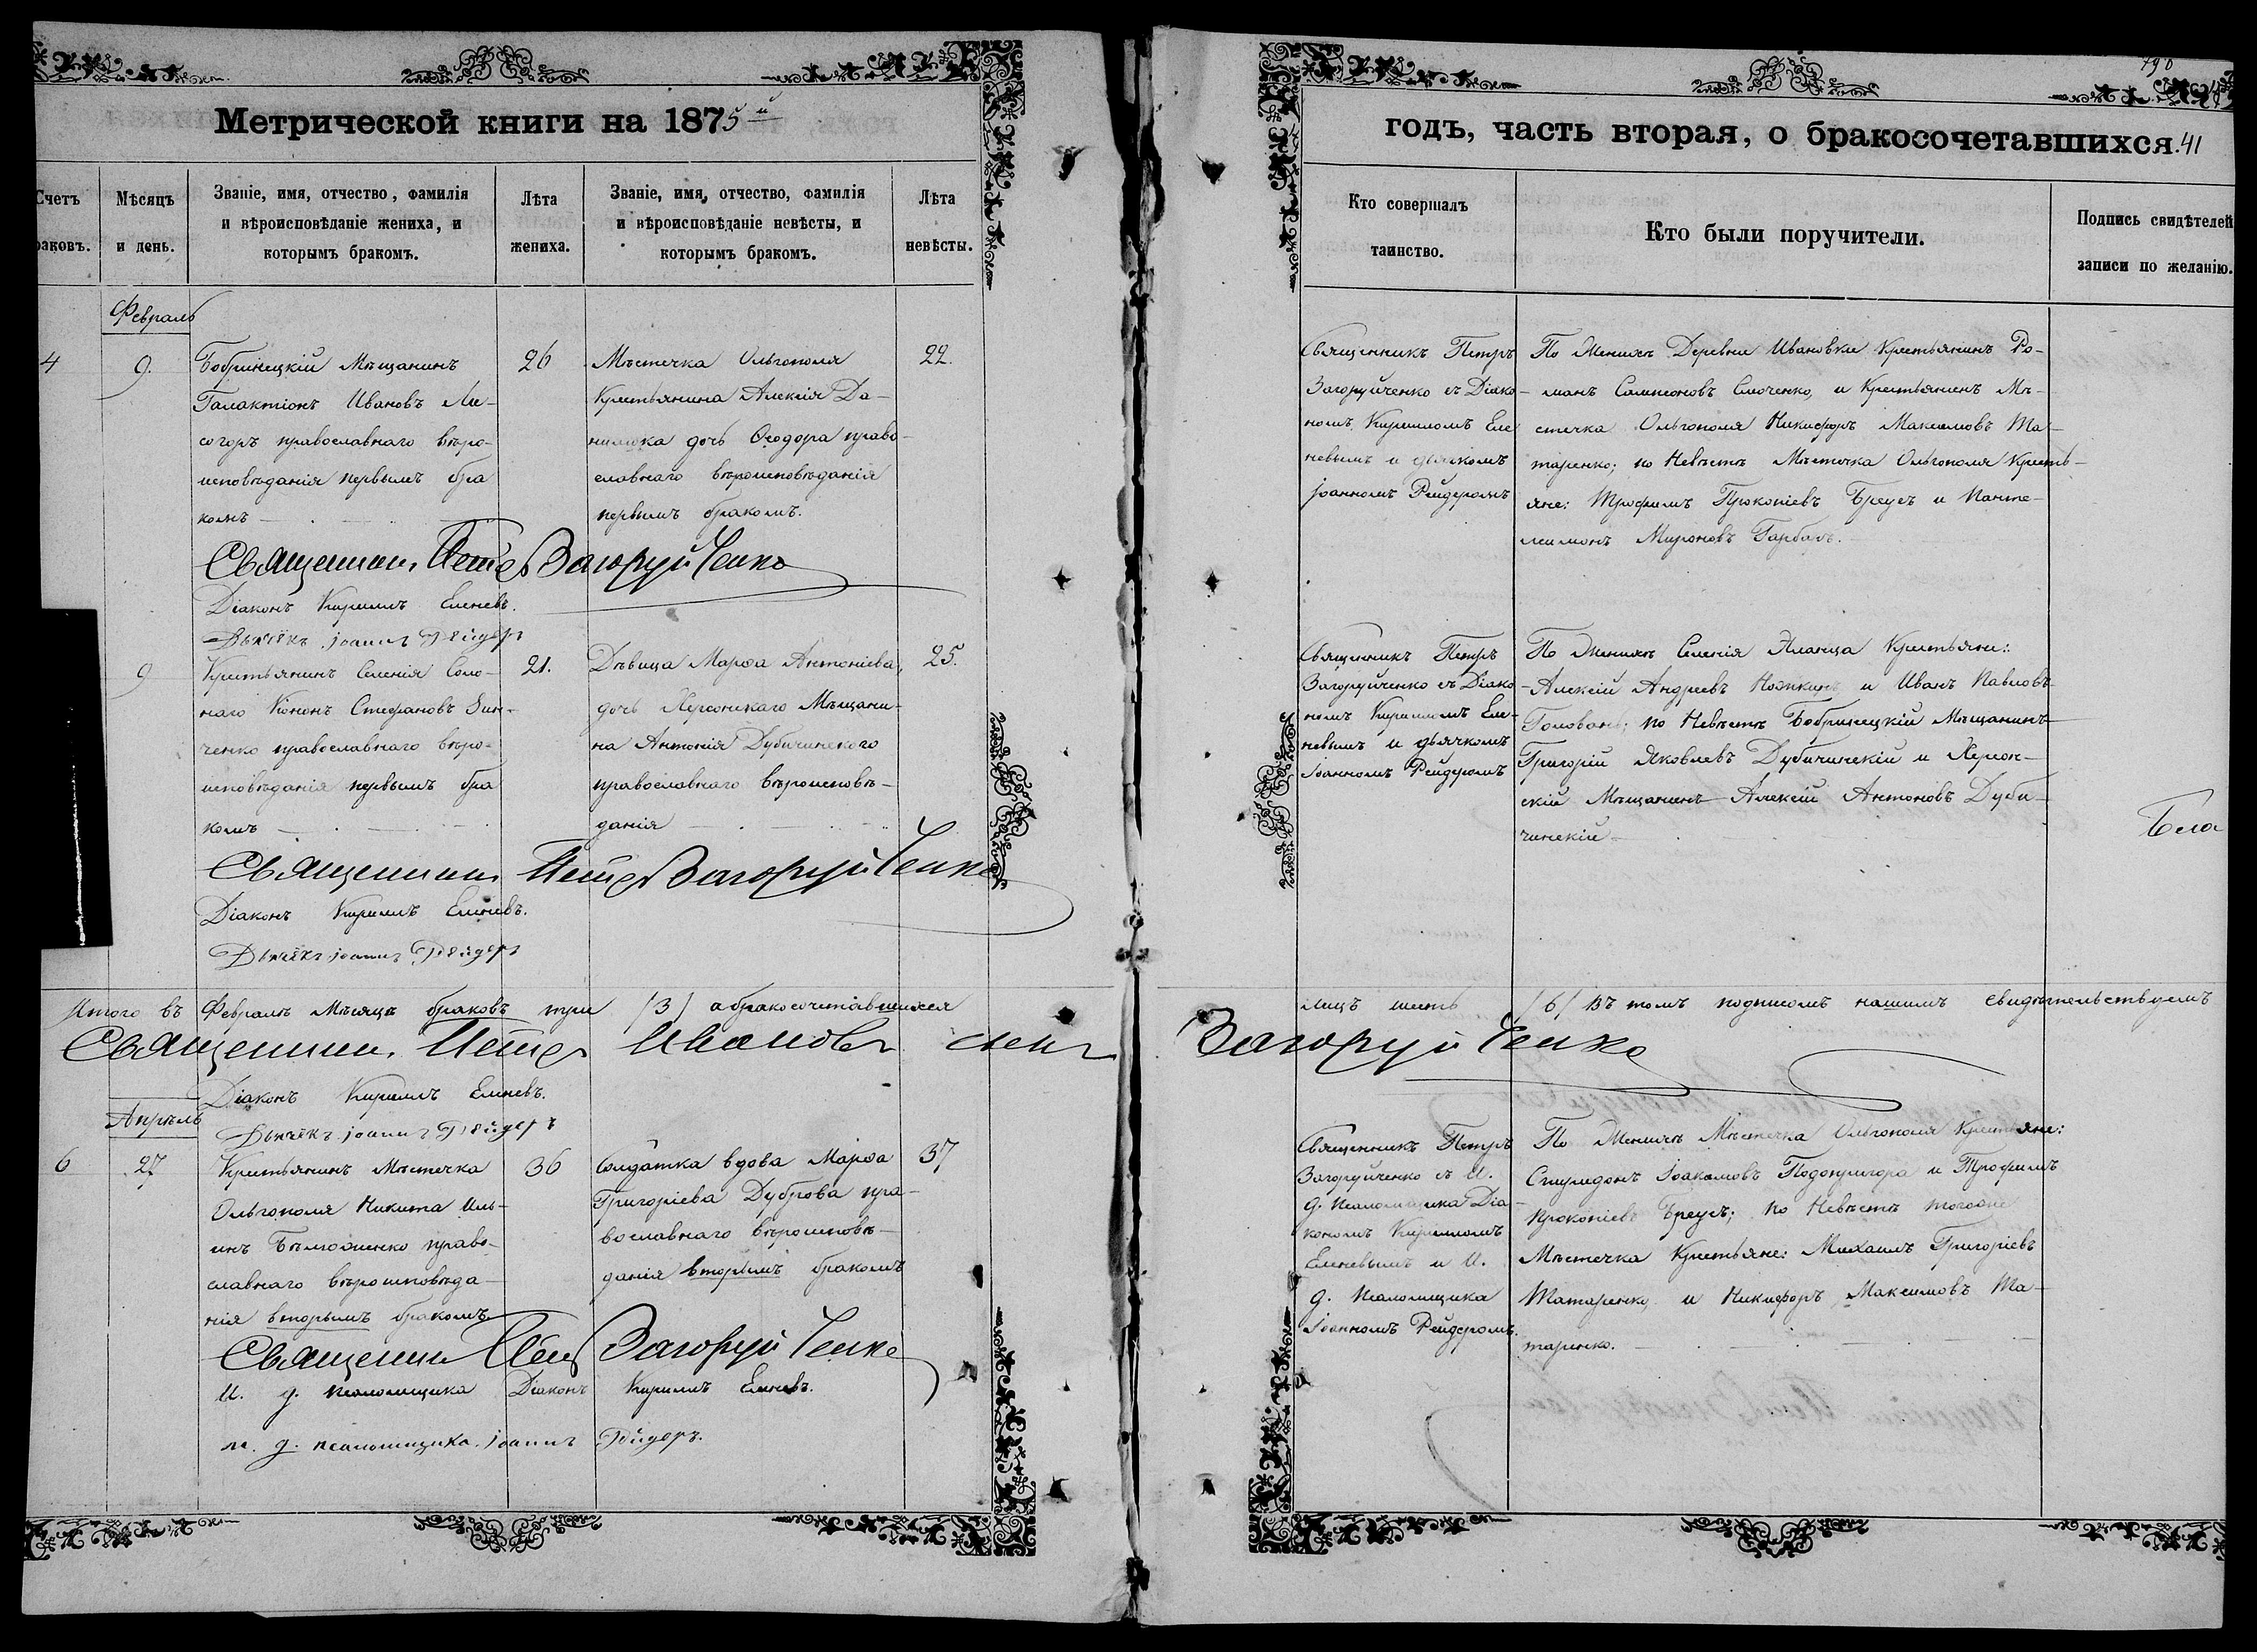 190
Метрической книги на 1875й
годъ, часть вторая, о бракосочетавшихся. 41
Счетъ
раковъ.
Мѣсяцъ
и день.
Званіе, имя, отчество, фамилія
и вѣроисповѣданіе жениха, и
которымъ бракомъ.
Лѣта
жениха.
Званіе, имя, отчество, фамилія
и вѣроисповѣданіе невѣсты, и
которымъ бракомъ.
Лѣта
невѣсты.
Кто совершалъ
таинство.
Кто были поручители.
Подпись свидѣтелей
записи по желанію.
Февраль
4
9.
Бобринецкій Мѣщанинъ
Галактіонъ Ивановъ Ли-
согоръ православнаго вѣро-
исповѣданія первымъ бра
комъ
26
Мѣстечка Ольгополя
Крестьянина Алексія Да-
нилюка дочь Ѳеодора право-
славнаго вѣроисповѣданія
первымъ бракомъ.
22.
Священникъ Петръ
Загоруйченко съ Діако-
номъ Кирилломъ Еле
невымъ и дьячкомъ
Іоанномъ Рейдеромъ
По Женихѣ Деревни Ивановки Крестьянинъ Ро-
манъ Сампсоновъ Смоченко, и Крестьянинъ Мѣ-
стечка Ольгополя Никифоръ Максимовъ Та-
таренко; по Невѣстѣ Мѣстечка Ольгополя Кресть-
яне: Трофимъ Прокопіевъ Бреусъ и Панте-
леимонъ Мироновъ Гарбаръ.
Священникъ Петръ Загоруйченко
Діаконъ Кириллъ Еленевъ.
Дьячекъ Іоаннъ Рейдеръ
9
Крестьянинъ Селенія Соло-
наго Кононъ Стефановъ Зин-
ченко православнаго вѣро-
исповѣданія первымъ бра
комъ
21.
Дѣвица Марѳа Антоніева,
дочь Херсонскаго Мѣщани-
на Антонія Дубичинскаго
православнаго вѣроисповѣ-
данія
25.
Священникъ Петръ
Загоруйченко съ Діако
номъ Кирилломъ Еле-
невымъ и дьячкомъ
Іоанномъ Рейдеромъ
По Женихѣ Селенія Еланца Крестьяне:
Алексій Андреевъ Ножкинъ и Иванъ Павловъ
Головань; по Невѣстѣ Бобринецкій Мѣщанинъ
Григорій Яковлевъ Дубичинскій и Херсон-
скій Мѣщанинъ Алексій Антоновъ Дуби-
чинскій
Бела
Священникъ Петръ Загоруйченко
Діаконъ Кириллъ Еленевъ.
Дьячекъ Іоаннъ Рейдеръ
Итого въ Февралѣ Мѣсяцѣ браковъ три /3/ а бракосочетавшихся лицъ шесть /6/ въ томъ подписомъ нашимъ свидѣтельствуемъ
Священникъ Петръ Ивановъ сынъ Загоруйченко
Діаконъ Кириллъ Еленевъ.
Дьячекъ Іоаннъ Рейдеръ
Апрѣль
6
27
Крестьянинъ Мѣстечка
Ольгополя Никита Иль-
инъ православнаго вѣроисповѣда-
нія вторымъ бракомъ
36
Солдатка вдова Марѳа
Григоріева Дуброва пра-
вославнаго вѣроисповѣ-
данія вторымъ бракомъ
37
Священникъ Петръ
Загоруйченко съ И.
д. псаломщика Діа-
кономъ Кирилломъ
Еленевымъ и И.
д. псаломщика
Іоанномъ Рейдеромъ.
По Женихѣ Мѣстечка Ольгополя Крестьяне:
Спиридонъ Іоакимовъ Подопригора и Трофимъ
Прокопіевъ Бреусъ; по Невѣстѣ тогоже
Мѣстечка Крестьяне: Михаилъ Григоріевъ
Татаренко и Никифоръ Максимовъ Та-
таренко.
Священникъ Петръ Загоруйченко
И. д. псаломщика Діаконъ Кириллъ Еленевъ.
И. д. псаломщика Іоаннъ Рейдеръ.